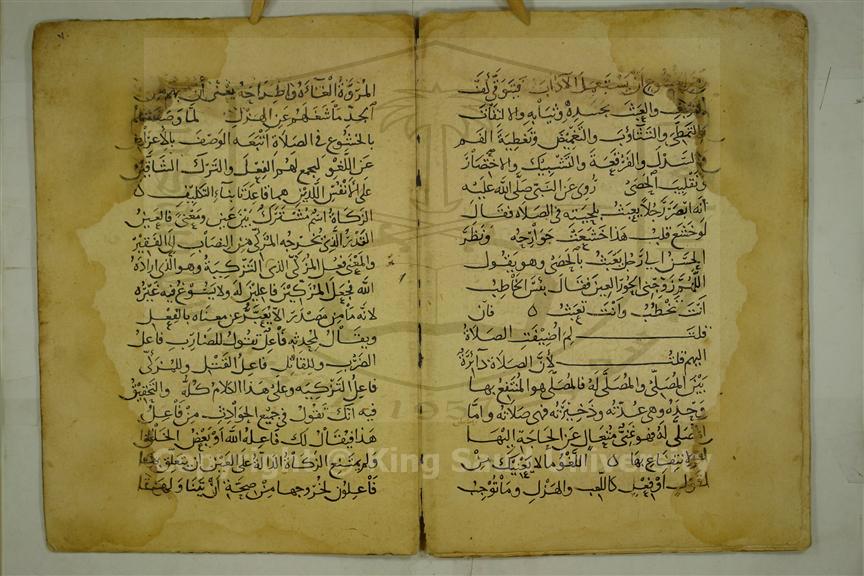 أن يستعمل الآداب فيتوقى كف
والعبث بجسده وثيابه والالتفات
والتمطي والتثاوب والتغميض وتغطية الفم
والسدل والفرقعة والتشبيك والاختصار
وتقليب الحصى روى عن النبي صلى الله عليه
أنه أبصر رجلا يعبث بلحيته في الصلاة فقال
لو خشع قلب هذا خشعت جوارحه ونظر
الحسن إلى رجل يعبث بالحصى وهو يقول
اللهم زوجني الحور العين فقال بئس الخاطب
أنت تخطب وأنت تعبث ه فان
قلت لم أضيفت الصلاة
اليهم قلت لأن الصلاة دايرة
بين المصلي والمصلى له فالمصلي هو المنتفع بها
وحده وهي عدته وذخيرته فهي صلاته وأما
المصلى له فهو غني متعال عن الحاجة اليها
والانتفاع بها ه اللغو ما لا يعنيك من
قول أو فعل كاللعب والهزل وما توجب
المروة الغاءه واطراحه يعني أن بهم من
الجد ما شغلهم عن الهزل لما وصفهم
بالخشوع في الصلاة أتبعه الوصف بالاعراض
عن اللغو ليجمع لهم الفعل والترك الشاقين
على الأنفس اللذين هما قاعدتا بناء التكليف ه
الزكاة اسم مشترك بين عين ومعنى فالعين
القدر الذي يخرجه المزكي من النصاب إلى الفقير
والمعنى فعل المزكي الذي التزكية وهو الذي اراده
الله فجعل المزكين فاعلين له ولا يسوغ فيه غيره
لانه ما من مصدر الا يعبر عن معناه بالفعل
ويقال لمحدثه فاعل تقول للضارب فاعل
الضرب وللقاتل فاعل القتل وللمزكي
فاعل التزكية وعلى هذا الكلام كله والتحقيق
فيه أنك تقول في جميع الحوادث من فاعل
هذا فيقال لك فاعله الله أو بعض الخلق
ولم يمتنع الزكاة الدالة على العين أن يتعلق بها
فاعلون لخروجها من صحة أن يتناولها